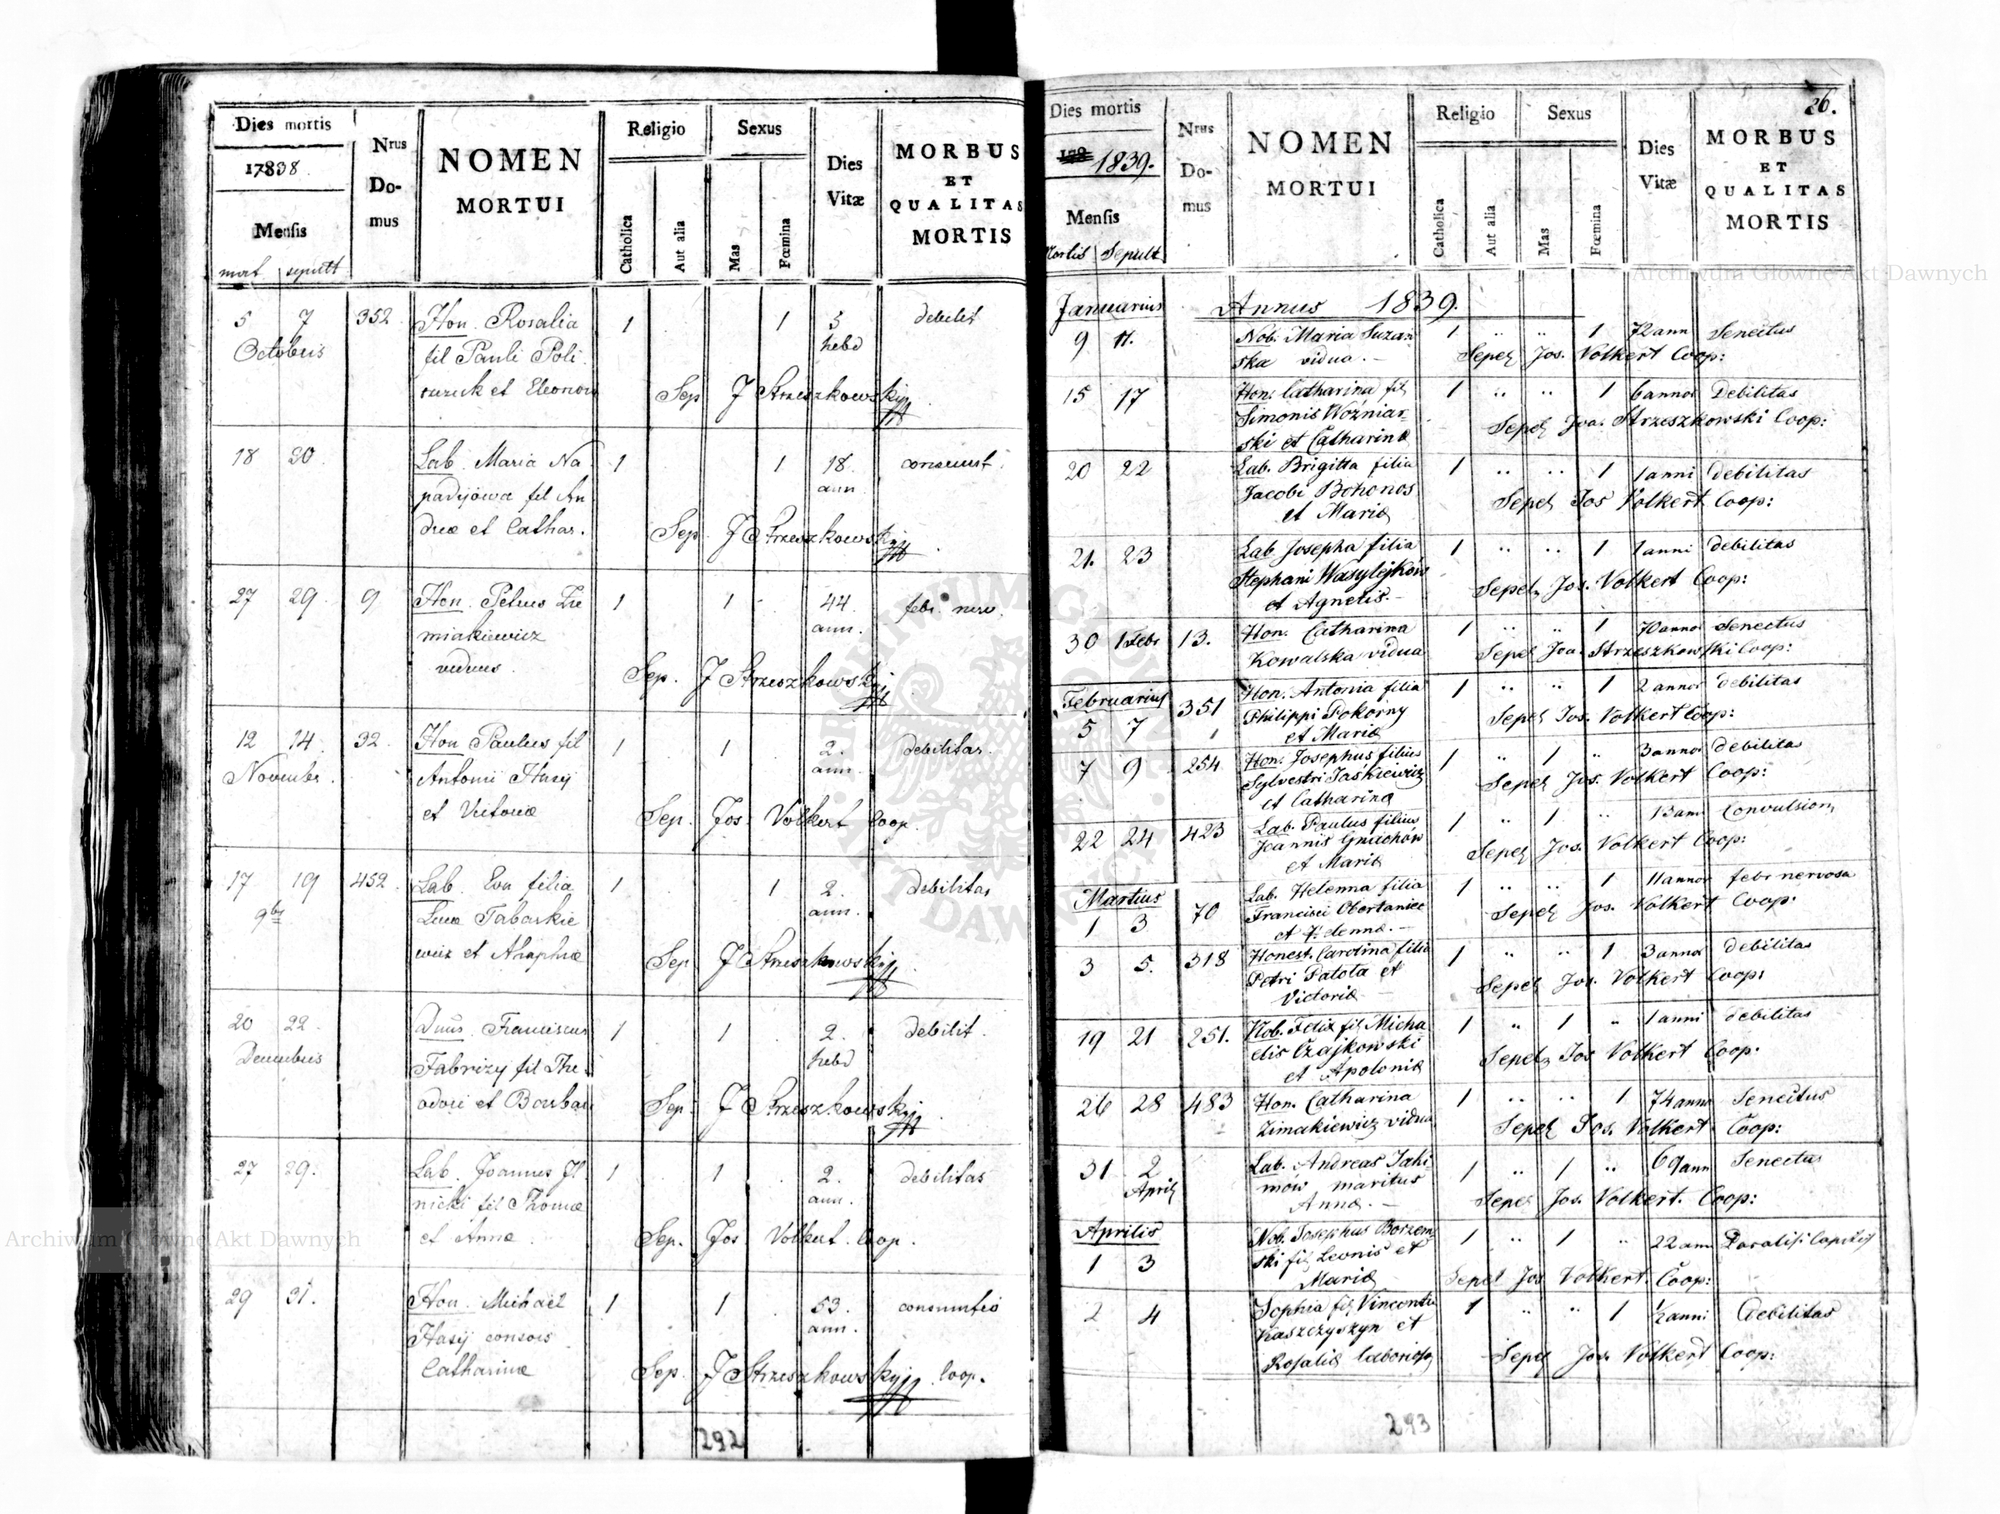 Dies mortis
17838.
Mensis
mort sepult
Nrus
Do-
mus
NOMEN
MORTUI
Religio
Catholica
Aut alia
Sexus
Mas
Fœmina
Dies
Vitæ
MORBUS
ET
QUALITAS
MORTIS
5 7 352 Hon. Rosalia 1 1 5 debilit
Octobris fil Pauli Poli hebd
et Eleonora Sep J Strzeszkowskij
18 20 Lab. Maria Na 1 1 18. consumt.
padijowa fil An ann.
dreæ et Cathar. Sep. J Strzeszkowskij
27 29 9 Hon. Petrus Zie 1 1 44. febr. nerv.
miakiewicz ann.
viduus. Sep. J Strzeszkowskij
12 14. 32. Hon Paulus fil 1 1 2. debilitas.
Novembr. Antonii Hasij ann.
et Victoriæ Sep. Jos. Volkert Coop.
17 19 452. Lab. Eva filia 1 1 2. debilitas
9bris Lucæ Tabaskie ann.
wicz et Ahaphiæ Sep J Strzeszkowskij
20 22. Dnus. Franciscus 1 1 2. debilit.
Decembris Fabrizy fil The- hebd
odori et Barbar Sep. J Strzeszkowskij
27 29. Lab. Joannes Il 1 1 2. debilitas
nicki fil Thomæ ann.
et Annæ. Sep. Jos. Volkert. Coop.
29 31. Hon. Michael 1 1 53. consumtio
Hasij consors ann.
Catharinæ Sep. J Strzeszkowskij Coop.
292
26.
Dies mortis
178 1839.
Mensis
Mortis Sepult
Nrus
Do-
mus
NOMEN
MORTUI
Religio
Catholica
Aut alia
Sexus
Mas
Fœmina
Dies
Vitæ
MORBUS
ET
QUALITAS
MORTIS
Januarius Annus 1839.
9 11. Nob. Maria Suzan- 1 " " 1 72 ann Senectus
ska vidua. - Sepel Jos. Volkert Coop:
15 17 Hon. Catharina fil 1 " " 1 6 annor Debilitas
Simonis Wozniar- Sepel Joa. Strzeszkowski Coop:
ski et Catharinæ
20 22 Lab. Brigitta filia 1 " " 1 1 anni debilitas
Jacobi Bohonos Sepel Jos Volkert Coop:
et Mariæ
21. 23 Lab Josepha filia 1 " " 1 1 anni debilitas
Stephani Wasylejkow Sepel Jos. Volkert Coop:
et Agnetis. -
30 1 Febr 13. Hon. Catharina 1 " " 1 70 annor Senectus
Kowalska vidua Sepel Joa. Strzeszkowski Coop:
Februarius 351 Hon. Antonia filia 1 " " 1 2 annor debilitas
5 7 Philippi Pokorny Sepel Jos. Volkert Coop:
et Mariæ
7 9 254 Hon. Josephus filius 1 " 1 " 3 annor debilitas
Sylvestri Jaśkiewicz Sepel Jos. Volkert Coop:
et Catharinæ
22 24 423 Lab. Paulus filius 1 " 1 " 13 ann Convulsion
Joannis Gniichów Sepel Jos. Volkert Coop:
et Mariæ
Martius 70 Lab. Helenna filia 1 " " 1 11 annor febr nervosa
1 3 Francisci Obertaniec Sepel Jos. Volkert Coop:
et Helennæ. -
3 5. 318 Honest. Carolina filia 1 " " 1 3 annor debilitas
Petri Patota et Sepel Jos. Volkert Coop:
Victoriæ -
19 21 251. Nob. Felix fil Micha 1 " 1 " 1 anni debilitas
elis Czajkowski Sepel Jos Volkert Coop.
et Apoloniæ
26 28 483 Hon. Catharina 1 " " 1 74 anno Senectus
Zimakiewicz vidua Sepel Jos. Volkert Coop:
31 2 Lab. Andreas Jahi- 1 " 1 " 69 ann Senectus
April mów maritus Sepel Jos. Volkert. Coop:
Annæ. -
Aprilis Nob. Josephus Borzem 1 " 1 " 22 ann Paralisi Capitis
1 3 ski fil Leonis et
Mariæ Sepel Jos Volkert. Coop:
2 4 Sophia fil Vincentii 1 " " 1 ½ anni debilitas
Kaszczyszyn et
Rosaliæ laborios Sepel Jos. Volkert Coop:
293
Archiwum Główne Akt Dawnych
Archiwum Główne Akt Dawnych
ARCHIWUM GŁÓWNE AKT DAWNYCH